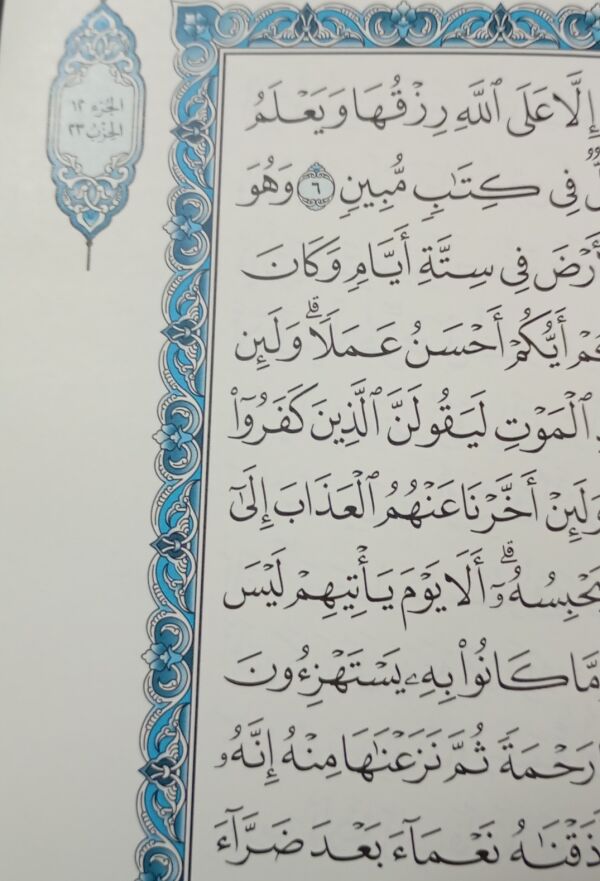 الجزء ١٢
الحزب ٢٣
إِلَّا عَلَى ٱللَّهِ رِزْقُهَا وَيَعْلَمُ
فِى كِتَٰبٍ مُّبِينٍ ٦ وَهُوَ
فِى سِتَّةِ أَيَّامٍ وَكَانَ
أَيُّكُمْ أَحْسَنُ عَمَلًا ۗ وَلَئِن
ٱلْمَوْتِ لَيَقُولَنَّ ٱلَّذِينَ كَفَرُوٓا۟
وَلَئِنْ أَخَّرْنَا عَنْهُمُ ٱلْعَذَابَ إِلَىٰٓ
يَحْبِسُهُۥٓ ۗ أَلَا يَوْمَ يَأْتِيهِمْ لَيْسَ
مَّا كَانُوا۟ بِهِۦ يَسْتَهْزِءُونَ
رَحْمَةً ثُمَّ نَزَعْنَٰهَا مِنْهُ إِنَّهُۥ
نَعْمَآءَ بَعْدَ ضَرَّآءَ